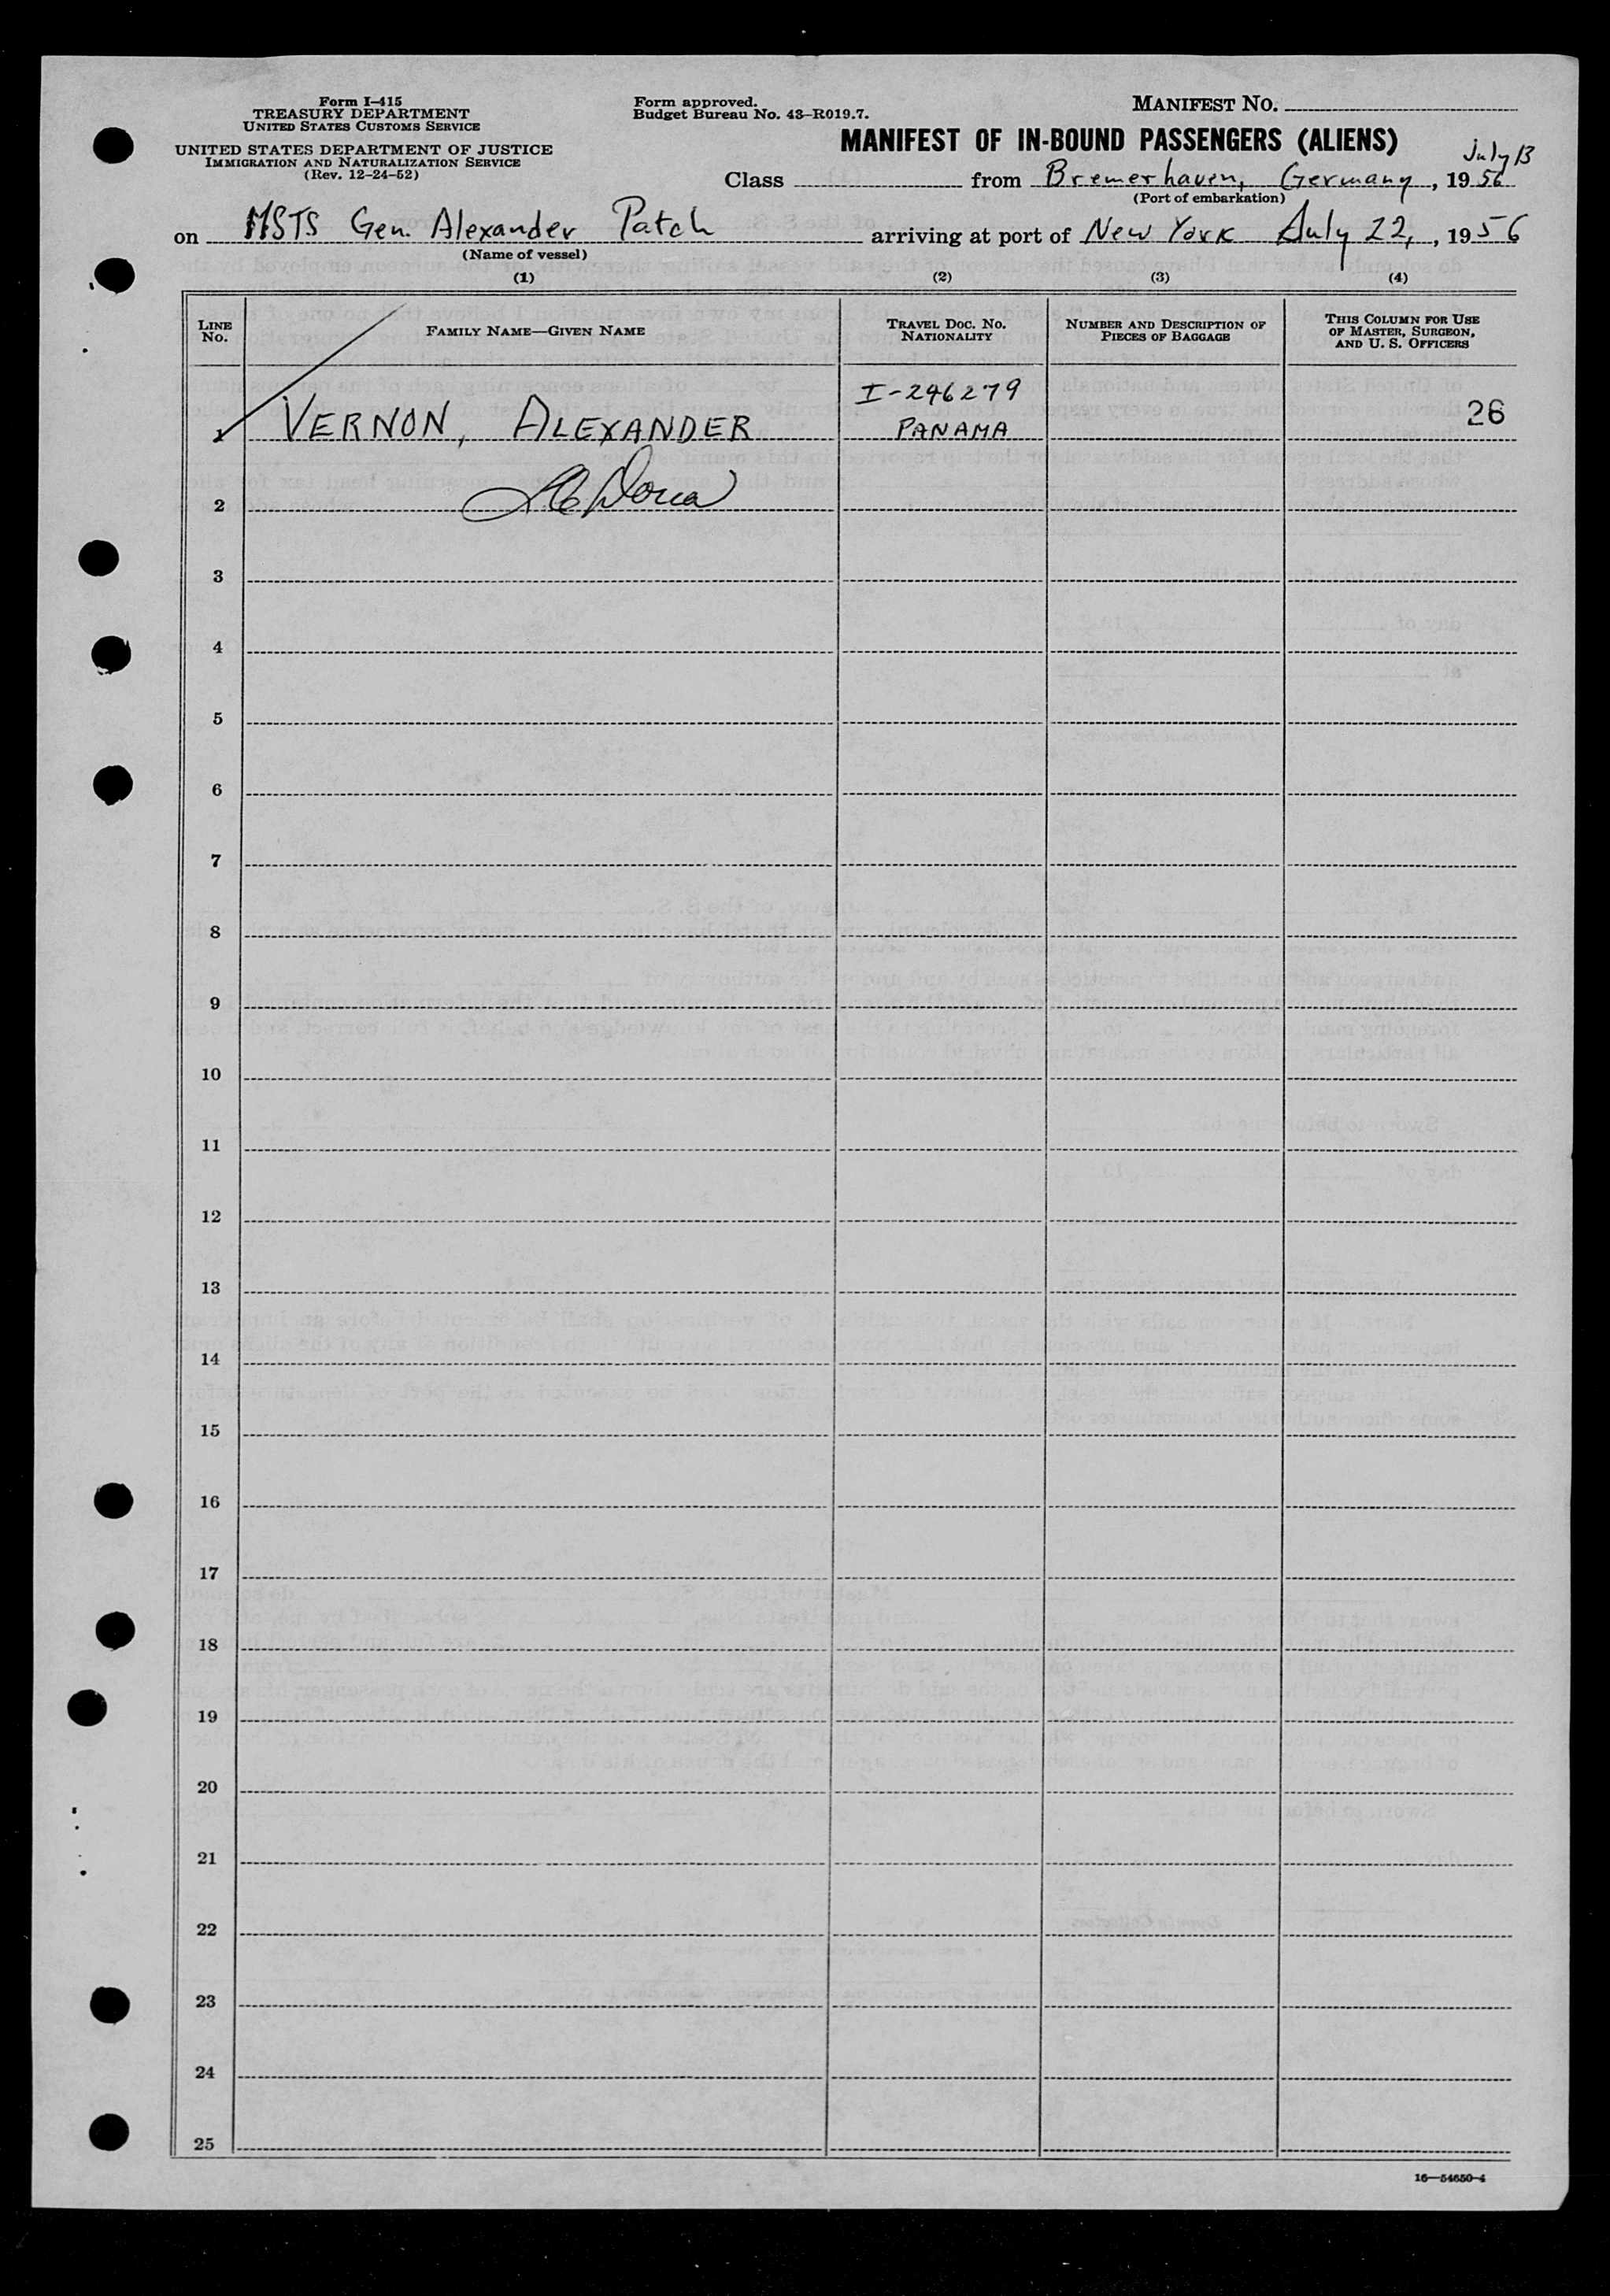 Form I-415
TREASURY DEPARTMENT
UNITED STATES CUSTOMS SERVICE
UNITED STATES DEPARTMENT OF JUSTICE
IMMIGRATION AND NATURALIZATION SERVICE
(Rev. 12-24-52)
Form approved.
Budget Bureau No. 43-R019.7.
MANIFEST NO.
MANIFEST OF IN-BOUND PASSENGERS (ALIENS)
Class from Bremerhaven, Germany, July 13 1956
(Port of embarkation)
on MSTS Gen. Alexander Patch arriving at port of New York July 22, , 1956
(Name of vessel)
(1) (2) (3) (4)
LINE NO. FAMILY NAME—GIVEN NAME TRAVEL DOC. NO. NATIONALITY NUMBER AND DESCRIPTION OF PIECES OF BAGGAGE THIS COLUMN FOR USE OF MASTER, SURGEON, AND U. S. OFFICERS
I-246279
1 VERNON, ALEXANDER PANAMA 26
2
3
4
5
6
7
8
9
10
11
12
13
14
15
16
17
18
19
20
21
22
23
24
25
16—54650-4